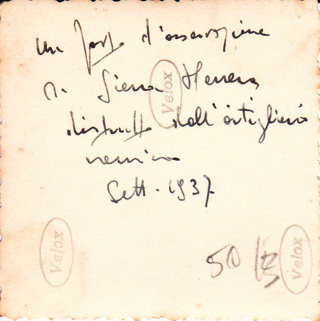 un posto d'osservazione
di Sierra Herrera
distrutto dall'artiglieria
nemica
Sett. 1937
50
Velox
Velox
Velox